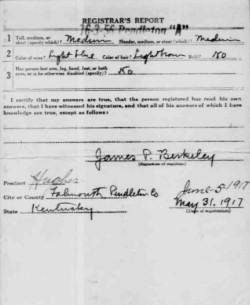 REGISTRAR'S REPORT
16-3-56 Pendleton "A"
1 Tall, medium, or short (specify which)? Medium Slender, medium, or stout (which)? Medium
2 Color of eyes? Light blue Color of hair? Light brown Bald? No
3 Has person lost arm, leg, hand, foot, or both
eyes, or is he otherwise disabled (specify)? No
I certify that my answers are true, that the person registered has read his own
answers, that I have witnessed his signature, and that all of his answers of which I have
knowledge are true, except as follows:
James P. Berkeley
(Signature of registrar)
Precinct Hughes
City or County Falmouth, Pendleton Co
State Kentucky
June-5-1917
May 31, 1917
(Date of registration)